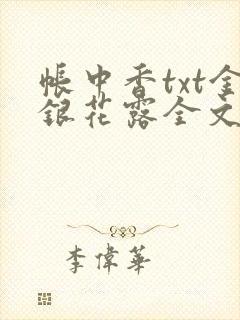 帳中香txt金
銀花露全文
李偉華